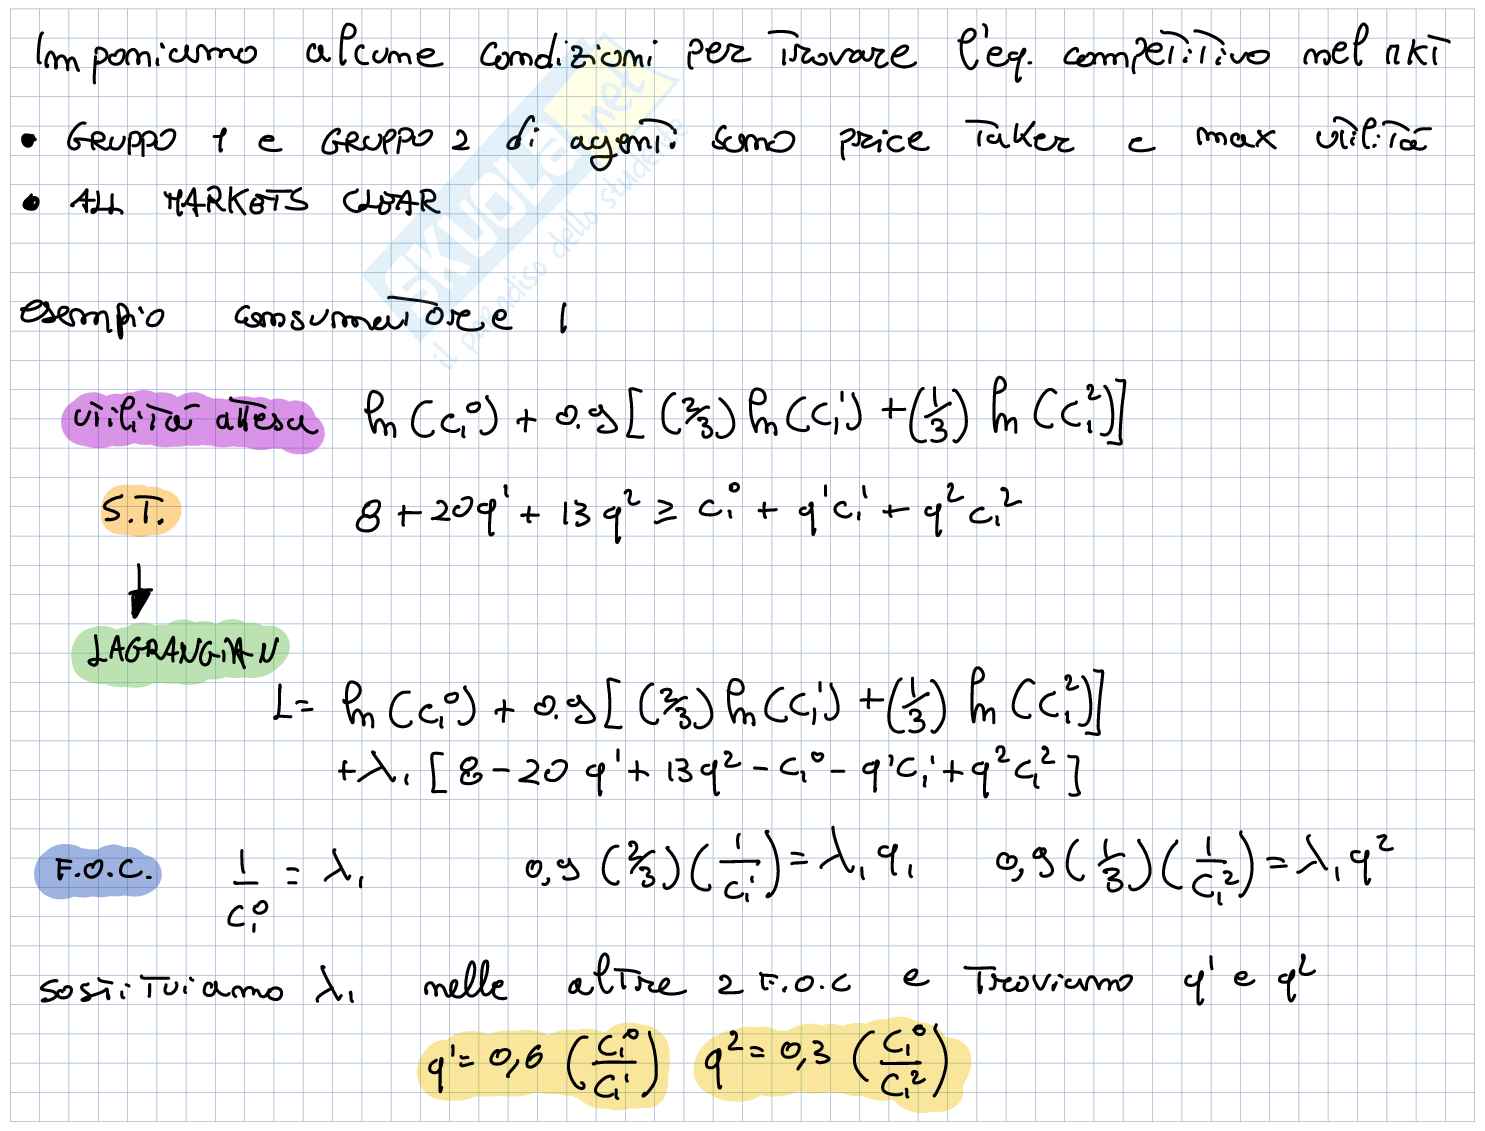 Imponiamo alcune condizioni per trovare l'eq. competitivo nel mkt
• GRUPPO 1 e GRUPPO 2 di agenti sono price taker e max utilità
• ALL MARKETS CLEAR
SKUOLA.net
il paradiso dello studente
esempio consumatore 1
utilità attesa ln(c₁⁰) + 0.9[(2/3) ln(c₁¹) + (1/3) ln(c₁²)]
S.T. 8 + 20q¹ + 13q² ≥ c₁⁰ + q¹c₁¹ + q²c₁²
LAGRANGIAN
L= ln(c₁⁰) + 0.9[(2/3) ln(c₁¹) + (1/3) ln(c₁²)]
+λ₁ [8 - 20 q¹ + 13q² - c₁⁰ - q¹c₁¹ + q²c₁²]
F.O.C. 1/c₁⁰ = λ₁ 0,9 (2/3)(1/c₁¹) = λ₁ q₁ 0,9 (1/3)(1/c₁²) = λ₁ q²
sostituiamo λ₁ nelle altre 2 F.O.C e troviamo q¹ e q²
q¹ = 0,6 (c₁⁰/c₁¹) q² = 0,3 (c₁⁰/c₁²)